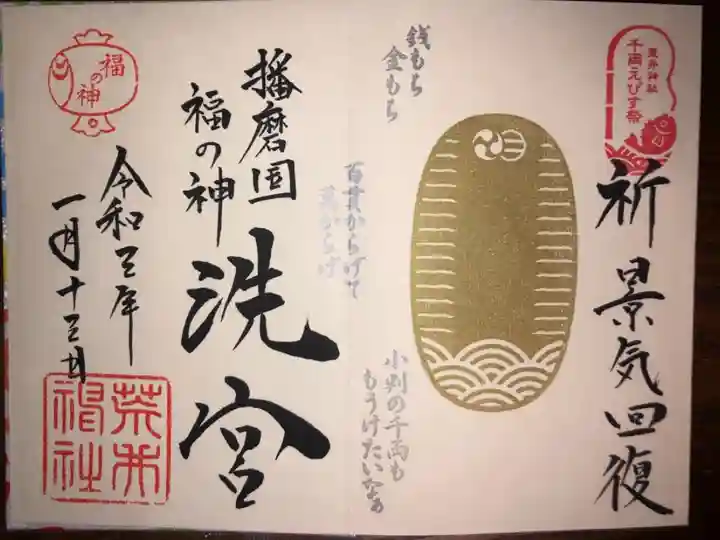 荒井神社
千両えびす祭
祈 景気回復
銭もち
金もち
百貫からげて
蔵からげ
小判の千両も
もうけたいなぁ
播磨国
福の神
洗宮
福の神
令和三年
一月十三日
荒井
神社